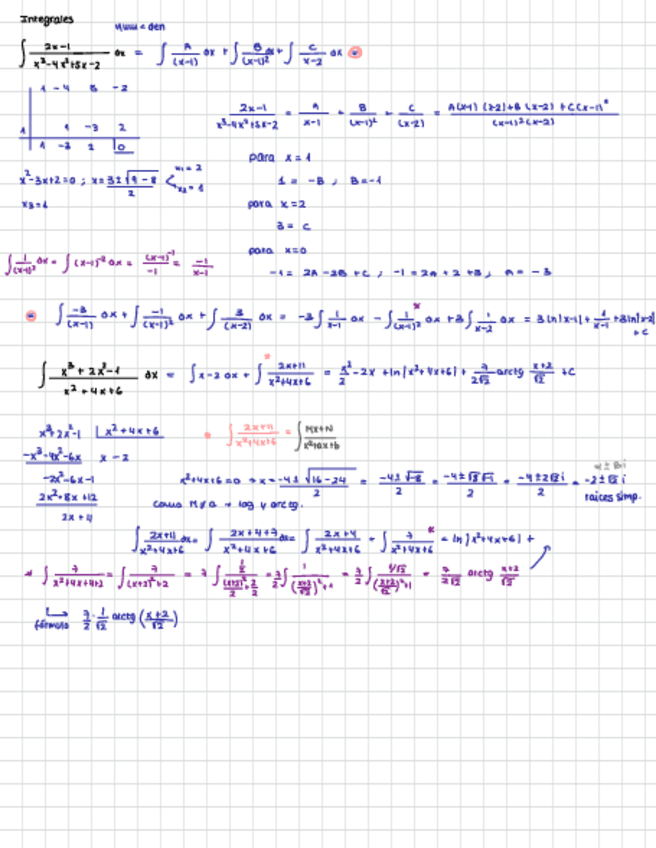 Integrales
num < den
∫ (2x-1)/(x³-4x²+5x-2) dx = ∫ A/(x-1) dx + ∫ B/(x-1)² dx + ∫ C/(x-2) dx
1 -4 5 -2
1 1 -3 2
1 -3 2 0
(2x-1)/(x³-4x²+5x-2) = A/(x-1) + B/(x-1)² + C/(x-2) = (A(x-1)(x-2)+B(x-2)+C(x-1)²)/((x-1)²(x-2))
x²-3x+2=0 ; x = (3±√(9-8))/2 < x₁=2 x₂=1
x₃=1
para x=1
1 = -B ; B=-1
para x=2
3 = C
para x=0
-1 = 2A -2B + C ; -1 = 2A + 2 + 3 ; A = -3
∫ 1/(x-1)² dx = ∫ (x-1)⁻² dx = (x-1)⁻¹/-1 = -1/(x-1)
∫ -3/(x-1) dx + ∫ -1/(x-1)² dx + ∫ 3/(x-2) dx = -3∫ 1/(x-1) dx - ∫ 1/(x-1)² dx + 3∫ 1/(x-2) dx = 3 ln|x-1| + 1/(x-1) + 3 ln|x-2| + C
∫ (x³+2x²-1)/(x²+4x+6) dx = ∫ x-2 dx + ∫ (2x+11)/(x²+4x+6) = x²/2 -2x + ln|x²+4x+6| + 7/(2√2) arctg (x+2)/√2 + C
x³+2x²-1 | x²+4x+6
-x³-4x²-6x x-2
-2x²-6x-1
2x²+8x+12
2x+11
∫ (2x+11)/(x²+4x+6) = ∫ (Mx+N)/(x²+ax+b)
x²+4x+6=0 → x = (-4±√(16-24))/2 = (-4±√-8)/2 = (-4±√8√-1)/2 = (-4±2√2 i)/2 = -2±√2 i
α ± βi
raíces simp.
como M≠0 → log y arctg.
∫ (2x+11)/(x²+4x+6) dx = ∫ (2x+4+7)/(x²+4x+6) dx = ∫ (2x+4)/(x²+4x+6) + ∫ 7/(x²+4x+6) = ln|x²+4x+6| +
* ∫ 7/(x²+4x+4+2) = ∫ 7/((x+2)²+2) = 7∫ (1/2)/((x+2)²/2+2/2) = 7/2 ∫ 1/(((x+2)/√2)²+1) = 7/2 ∫ (1/√2)/(((x+2)/√2)²+1) = 7/(2√2) arctg (x+2)/√2
fórmula 7/2 · 1/√2 arctg ((x+2)/√2)